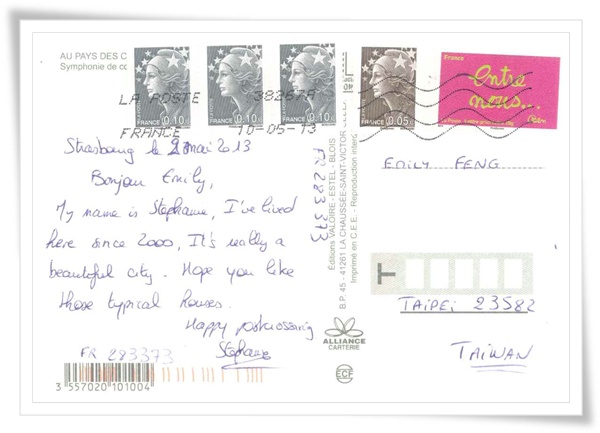 AU PAYS DES C
Symphonie de co
FRANCE 0,10 €
FRANCE 0,10 €
FRANCE 0,10 €
FRANCE 0,05 €
France
Entre
nous...
Ben
LA POSTE 38267A
FRANCE 10-05-13
Strasbourg le mai 2013
Bonjour Emily,
My name is Stéphanie, I've lived
here since 2000, It's really a
beautiful city. Hope you like
those typical houses.
Happy postcrossing
Stéphanie
FR 283373
3 557020 101004
FR 283 373
Éditions VALOIRE - ESTEL - BLOIS
B.P. 45 - 41261 LA CHAUSSÉE-SAINT-VICTOR
Imprimé en C.E.E. - Reproduction interd
ALLIANCE
CARTERIE
ECF
EMILY FENG
T
TAIPEI 23582
TAIWAN